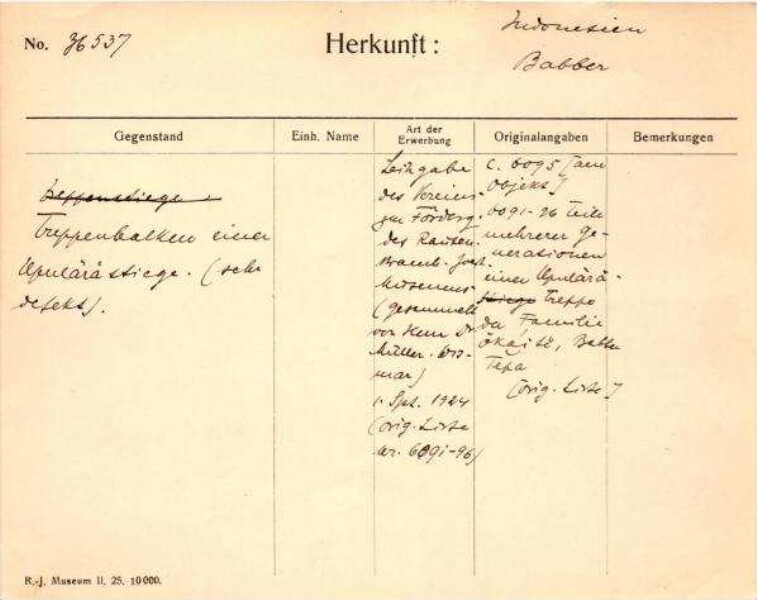 No. 36537
Herkunft:
Indonesien
Babber
Gegenstand
Einh. Name
Art der Erwerbung
Originalangaben
Bemerkungen
Treppenstiege
Treppenbalken einer
Upulärästiege. (sehr
defekt).
Leihgabe
des Vereins
zur Förderg.
des Rauten-
strauch-Joest
Museums
(gesammelt
von Herrn Dr
Müller-Wis-
mar)
1. Spt. 1924
(orig. Liste
Nr. 6091-96)
C. 6095 [am
Objekt]
6091-96 Teile
mehrerer Ge-
nerationen
einer Upulärä-
stiege Treppe
der Familie
Babber
Tepa
[orig. Liste]
R.-J. Museum II. 25. 10000.